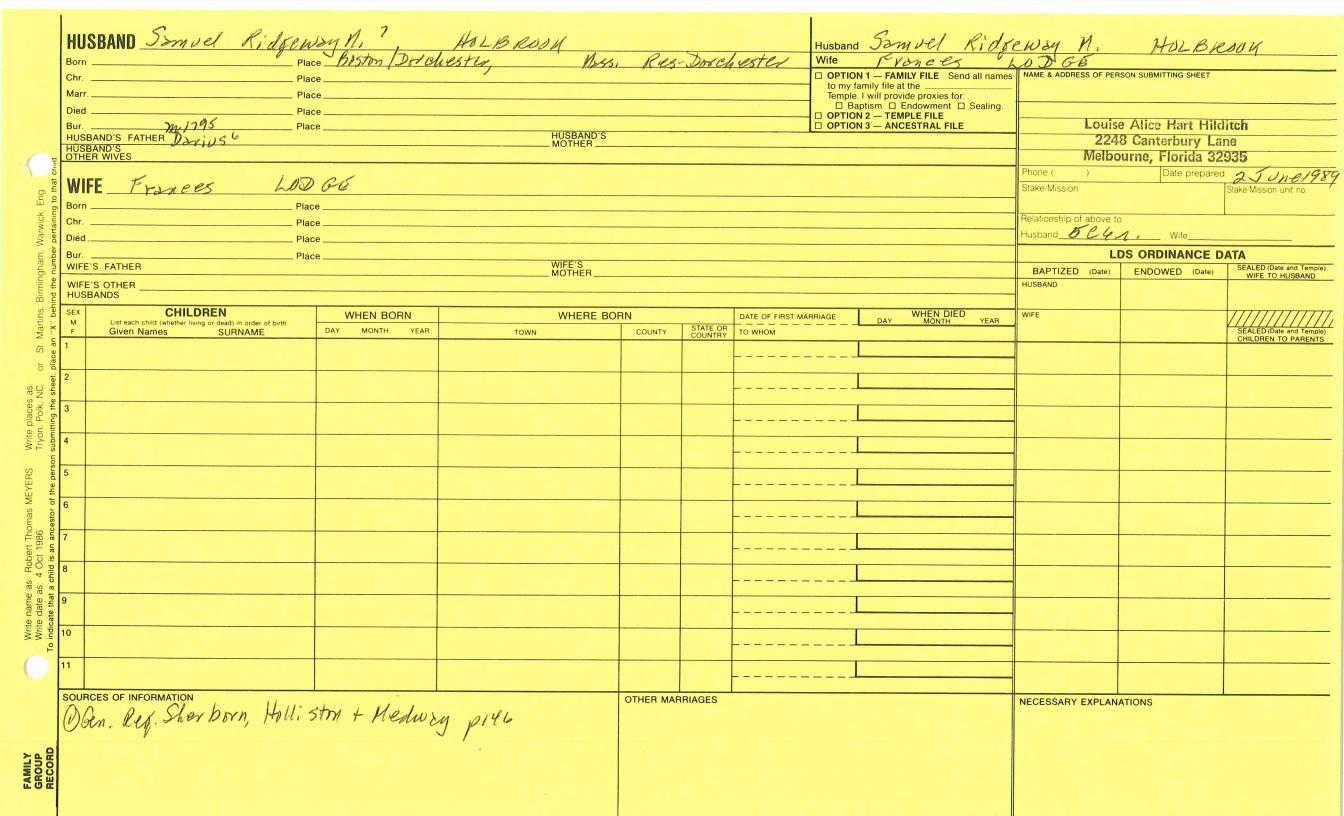 HUSBAND Samuel Ridgeway M. 7 HOLBROOK
Born Place Boston/Dorchester, Mass. Res-Dorchester
Chr. Place
Marr. Place
Died Place
Bur. m 1795 Place
HUSBAND'S FATHER Darius 6 HUSBAND'S MOTHER
HUSBAND'S OTHER WIVES
WIFE Frances LODGE
Born Place
Chr. Place
Died Place
Bur. Place
WIFE'S FATHER WIFE'S MOTHER
WIFE'S OTHER HUSBANDS
Husband Samuel Ridgeway M. HOLBROOK
Wife Frances LODGE
☐ OPTION 1 — FAMILY FILE Send all names
to my family file at the
Temple. I will provide proxies for:
☐ Baptism ☐ Endowment ☐ Sealing.
☐ OPTION 2 — TEMPLE FILE
☐ OPTION 3 — ANCESTRAL FILE
NAME & ADDRESS OF PERSON SUBMITTING SHEET
Louise Alice Hart Hilditch
2248 Canterbury Lane
Melbourne, Florida 32935
Phone ( ) Date prepared 2 June 1989
Stake/Mission Stake/Mission unit no.
Relationship of above to
Husband Wife
LDS ORDINANCE DATA
BAPTIZED (Date) ENDOWED (Date) SEALED (Date and Temple) WIFE TO HUSBAND
HUSBAND
WIFE
SEALED (Date and Temple) CHILDREN TO PARENTS
SEX M F
CHILDREN
List each child (whether living or dead) in order of birth
Given Names SURNAME
WHEN BORN
DAY MONTH YEAR
WHERE BORN
TOWN COUNTY STATE OR COUNTRY
DATE OF FIRST MARRIAGE
TO WHOM
WHEN DIED
DAY MONTH YEAR
1
2
3
4
5
6
7
8
9
10
11
SOURCES OF INFORMATION
① Gen. Reg. Sherborn, Holliston + Medway p146
OTHER MARRIAGES
NECESSARY EXPLANATIONS
Write name as: Robert Thomas MEYERS Write places as
Write date as: 4 Oct 1986 Tryon, Polk, NC or St. Martins, Birmingham, Warwick, Eng
To indicate that a child is an ancestor of the person submitting the sheet, place an "X" behind the number pertaining to that child.
FAMILY
GROUP
RECORD